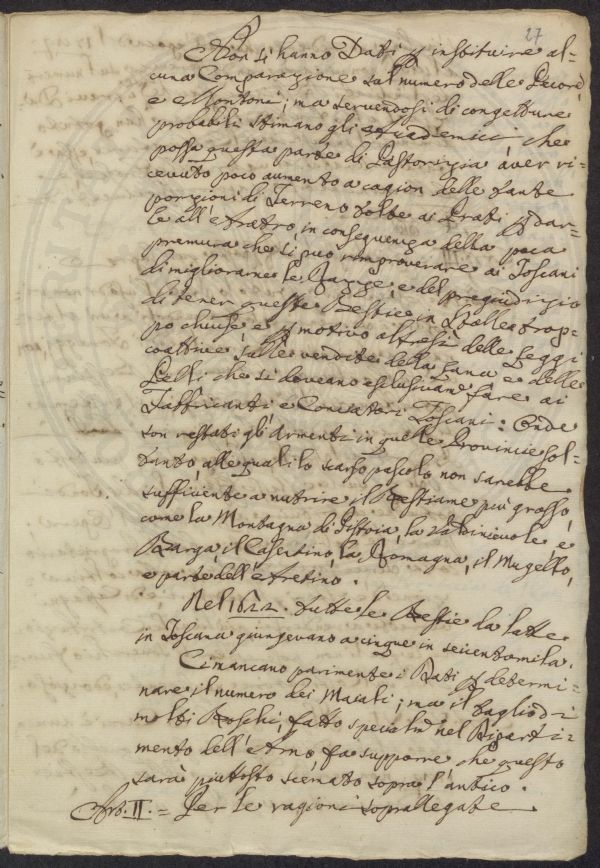 27
Non si hanno Dati p instituire al=
cuna Comparazione sul numero delle Pecore
e Montoni; ma servendosi di congetture
probabili stimano gli Accademici che
possa questa parte di Pastorizia aver ri=
cevuto poco aumento a cagion delle tante
porzioni di Terreno tolte ai Prati p dar=
le all' Aratro, in conseguenza della poca
premura che si può rimproverare ai Toscani
di migliorarne le Razze, e del pregiudizio
di tener queste Bestie in Stalle trop=
po chiuse e p motivo altresì delle Leggi
coattive sulle vendite della Lana e delle
Pelli che si doveano esclusivam fare ai
Fabbricanti e Conciatori Toscani: Onde
son restati gli Armenti in quelle Provincie sol=
tanto, alle quali lo scarso pascolo non sarebbe
sufficiente a nutrire il Bestiame più grosso,
come la Montagna di Pistoia, la Valdinievole, e
Barga, il Casentino, la Romagna, il Mugello,
e parte dell' Aretino.
Nel 1622. tutte le Bestie da latte
in Toscana giungevano a cinque in seicentomila.
Ci mancano parimente i Dati p determi=
nare il numero dei Maiali; ma il taglio di
molti Boschi, fatto specialm nel Riparti=
mento dell' Arno, fa supporre che questo
sarà piuttosto scemato sopra l' antico.
Art. II. = Per le ragioni soprallegate